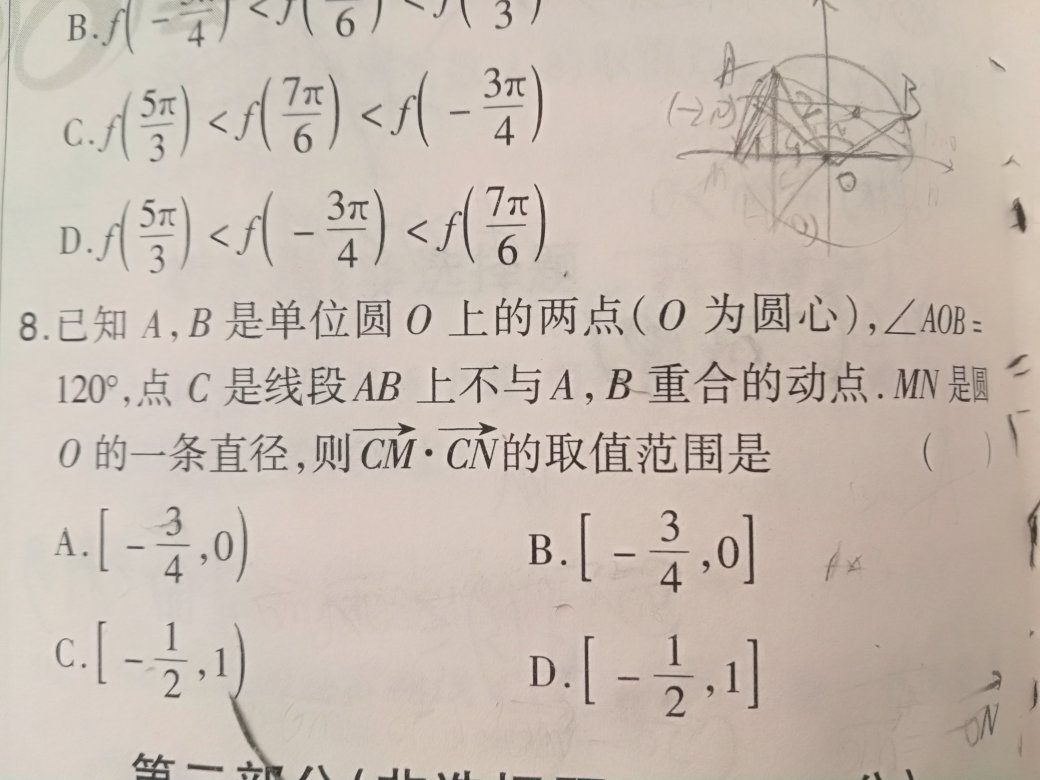 B. f(-3π/4) < f(7π/6) < f(5π/3)
C. f(5π/3) < f(7π/6) < f(-3π/4)
D. f(5π/3) < f(-3π/4) < f(7π/6)
8. 已知 A, B 是单位圆 O 上的两点(O 为圆心), ∠AOB=
120°, 点 C 是线段 AB 上不与 A, B 重合的动点. MN 是圆
O 的一条直径, 则 CM⃗ · CN⃗ 的取值范围是 ( )
A. [-3/4, 0) B. [-3/4, 0]
C. [-1/2, 1) D. [-1/2, 1]
A
B
O
ON⃗